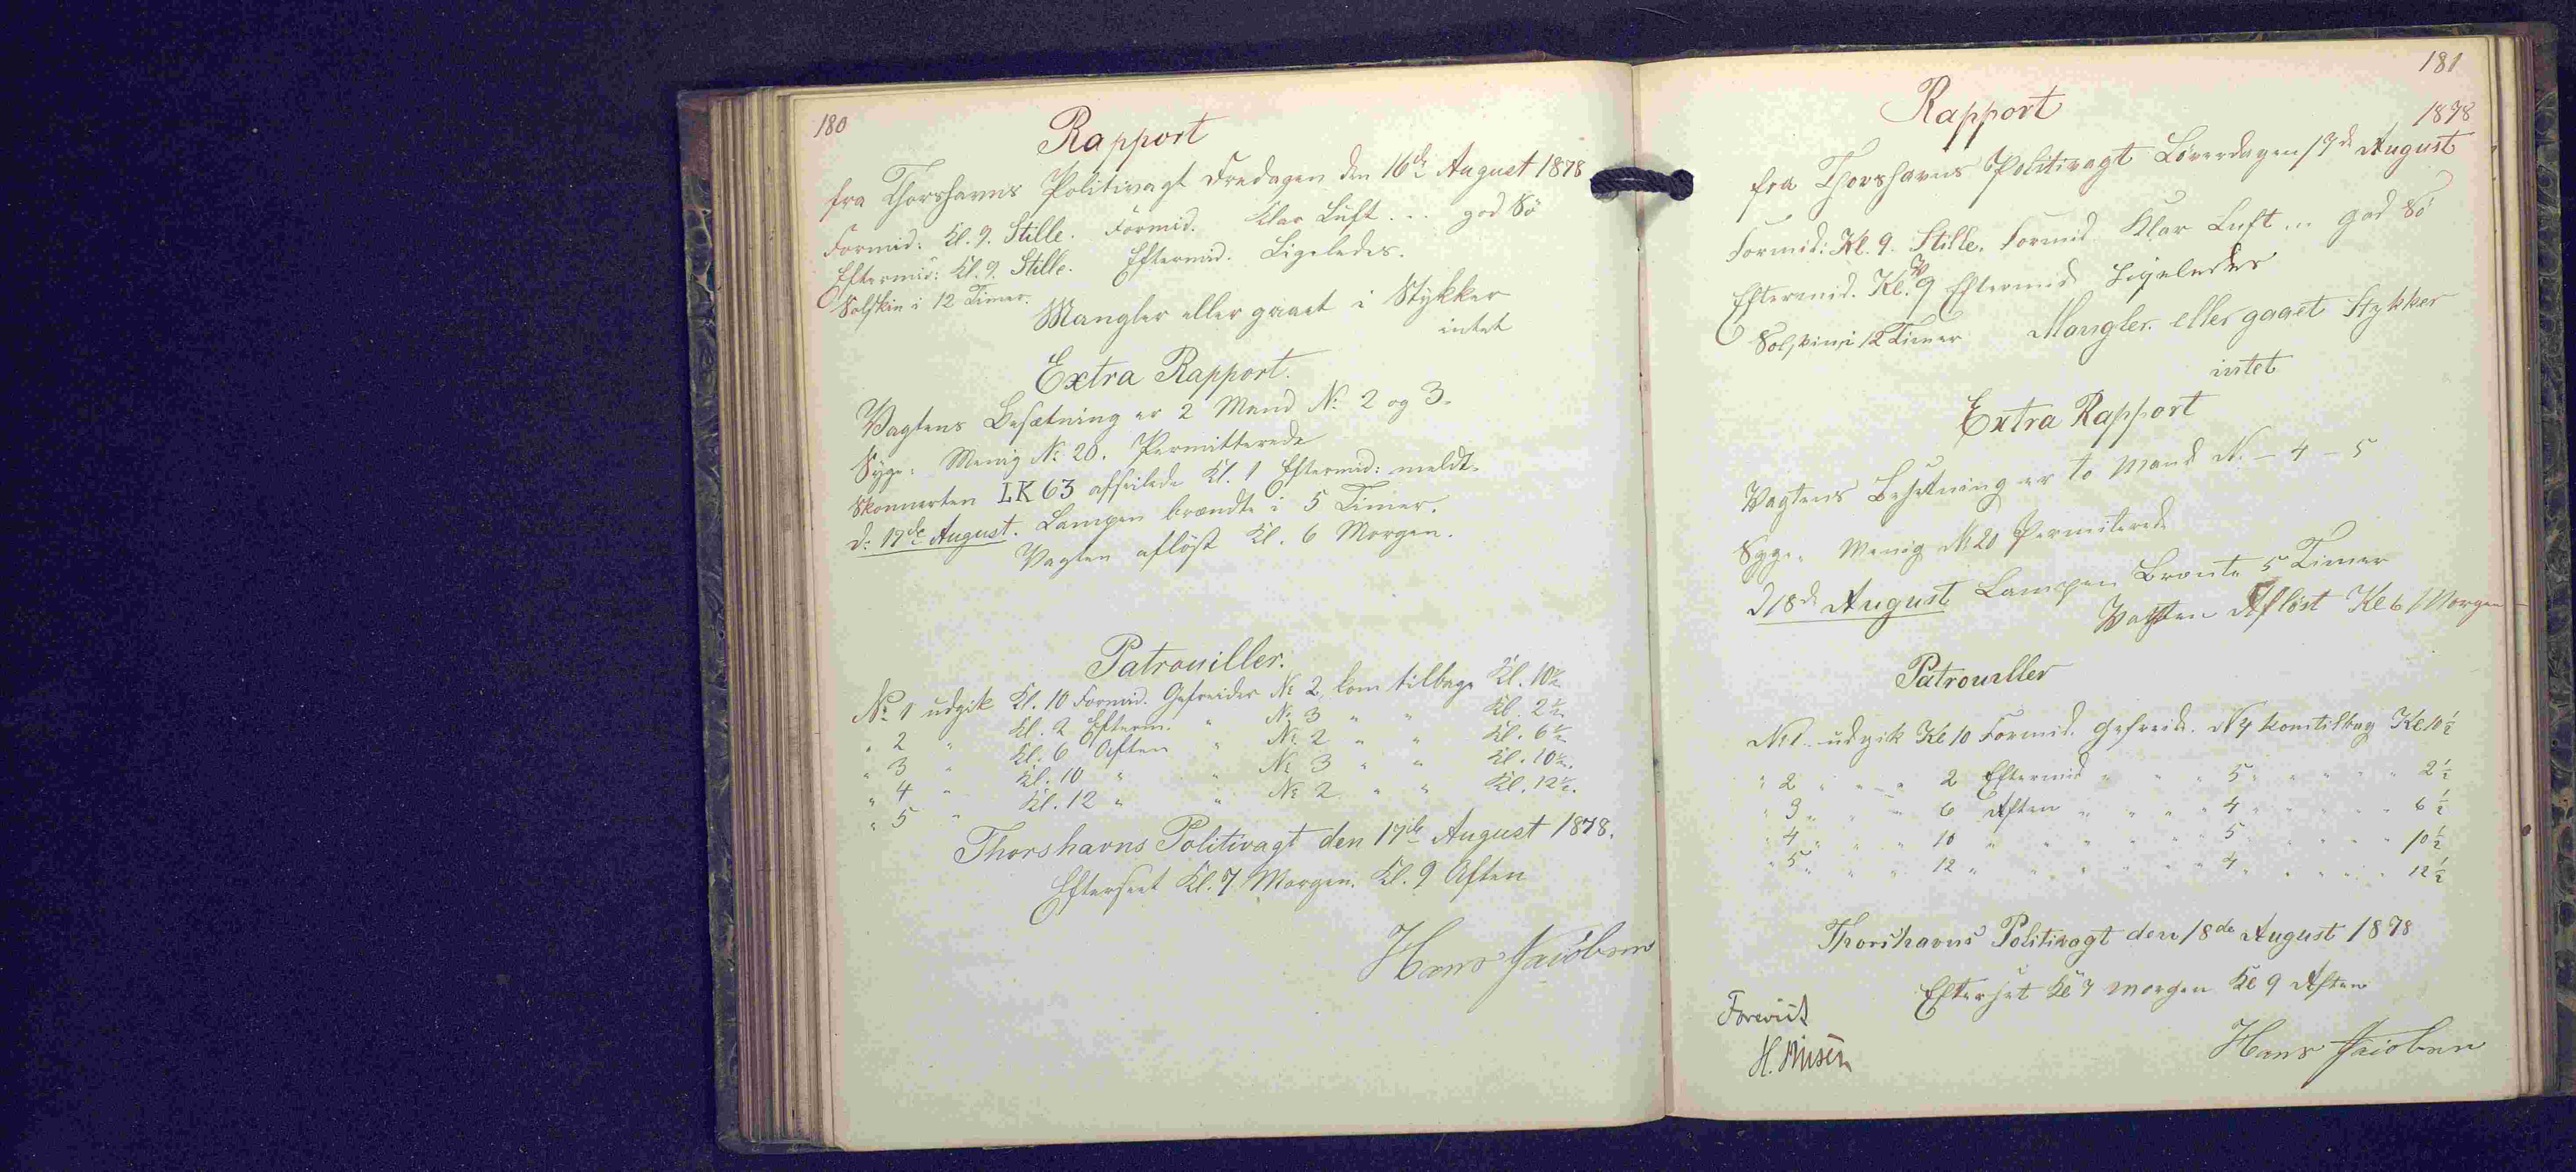 180
Rapport
fra Thorshavns Politivagt Fredagen den 16de August 1878
Formid: Kl. 9. Stille. Formid. Klar Luft... god Sö
Eftermid: Kl. 9. Stille. Eftermid. Ligeledes.
Solskin i 12 Timer.
Mangler eller gaaet i Stykker
intet
Extra Rapport.
Vagtens Besætning er 2 Mand No 2 og 3.
Syge: Menig No 20. Permitterede
Skonnerten LK 63 afseilede Kl. 1 Eftermid: meldt.
D. 17de August. Lampen brændte i 5 Timer.
Vagten aflöst Kl. 6 Morgen.
Patrouiller.
No 1 udgik Kl. 10 Formid. Gefreider No 2, kom tilbage Kl. 10½
" 2 " Kl. 2 Efterm. " No 3 " " Kl. 2½
" 3 " Kl. 6 Aften " No 2 " " Kl. 6½
" 4 " Kl. 10 " " No 3 " " Kl. 10½.
" 5 " Kl. 12 " " No 2 " " Kl. 12½.
Thorshavns Politivagt den 17de August 1878.
Efterseet Kl. 7 Morgen. Kl. 9 Aften
Hans Jacobsen
181
Rapport
1878
fra Thorshavns Politivagt Löverdagen 17de August
Formid: Kl. 9. Stille. Formid Klar Luft... god Sö
Eftermid. Kl. 9 Eftermid Ligeledes
Solskin i 12 Timer Mangler. eller gaaet Stykker
intet
Extra Rapport
Vagtens Besetning er to Mand N. – 4 – 5
Syge. Menig N 20 Permiterede
D 18de August Lampen Brænte 5 Timer
Vagten Aflöst Kl 6 Morgen
Patrouller
No 1 udgik Kl 10 Formid. Gefreide. N 4 kom tilbag Kl 10½
" 2 " " " 2 Eftermid " " " 5 " " " " 2½
" 3 " " " 6 Aften " " " 4 " " " " 6½
" 4 " " " 10 " " " " 5 " " " " 10½
" 5 " " " 12 " " " " 4 " " " " 12½
Thorshavns Politivagt den 18de August 1878
Efterset Kl 7 Morgen Kl 9 Aften
Forevist
H.
Hans Jacobsen